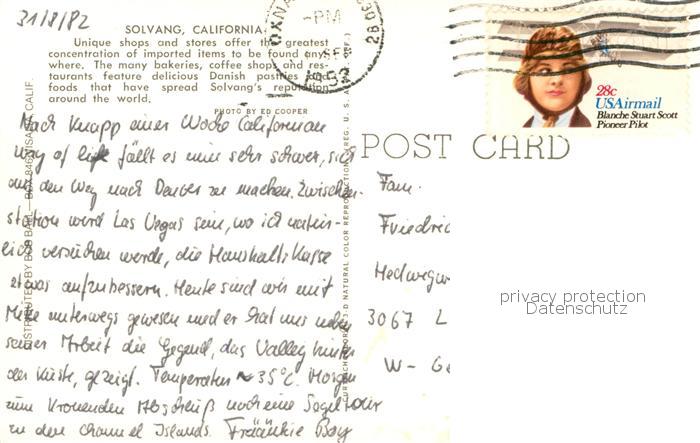 31/8/82
SOLVANG, CALIFORNIA
Unique shops and stores offer the greatest
concentration of imported items to be found any-
where. The many bakeries, coffee shops and res-
taurants feature delicious Danish pastries and
foods that have spread Solvang's reputation
around the world.
PHOTO BY ED COOPER
OXNARD
PM
28c
USAirmail
Blanche Stuart Scott
Pioneer Pilot
POST CARD
Nach knapp einer Woche Californian
way of life fällt es mir sehr schwer, sich
auf den Weg nach Denver zu machen. Zwischen-
station wird Las Vegas sein, wo ich natür-
lich versuchen werde, die Haushaltskasse
etwas aufzubessern. Heute sind wir mit
Mike unterwegs gewesen und er hat uns neben
seiner Arbeit die Gegend, das Valley hinter
der Küste, gezeigt. Temperatur ~ 35°C. Morgen
zum krönenden Abschluß noch eine Segeltour
zu den Channel Islands. Fräänkie Boy
Fam.
Friedric
Hedwegur
3067 L
W- Ge
DISTRIBUTED BY BOB
CALIF.
3-D NATURAL COLOR REPRODUCTION (REG. U. S.
privacy protection
Datenschutz